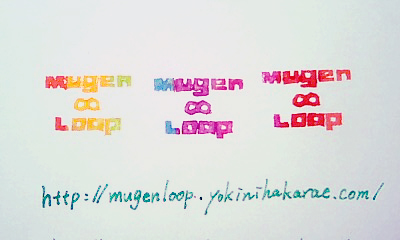 Mugen Mugen Mugen
∞ ∞ ∞
Loop Loop Loop
http://mugenloop.yokinihakarae.com/